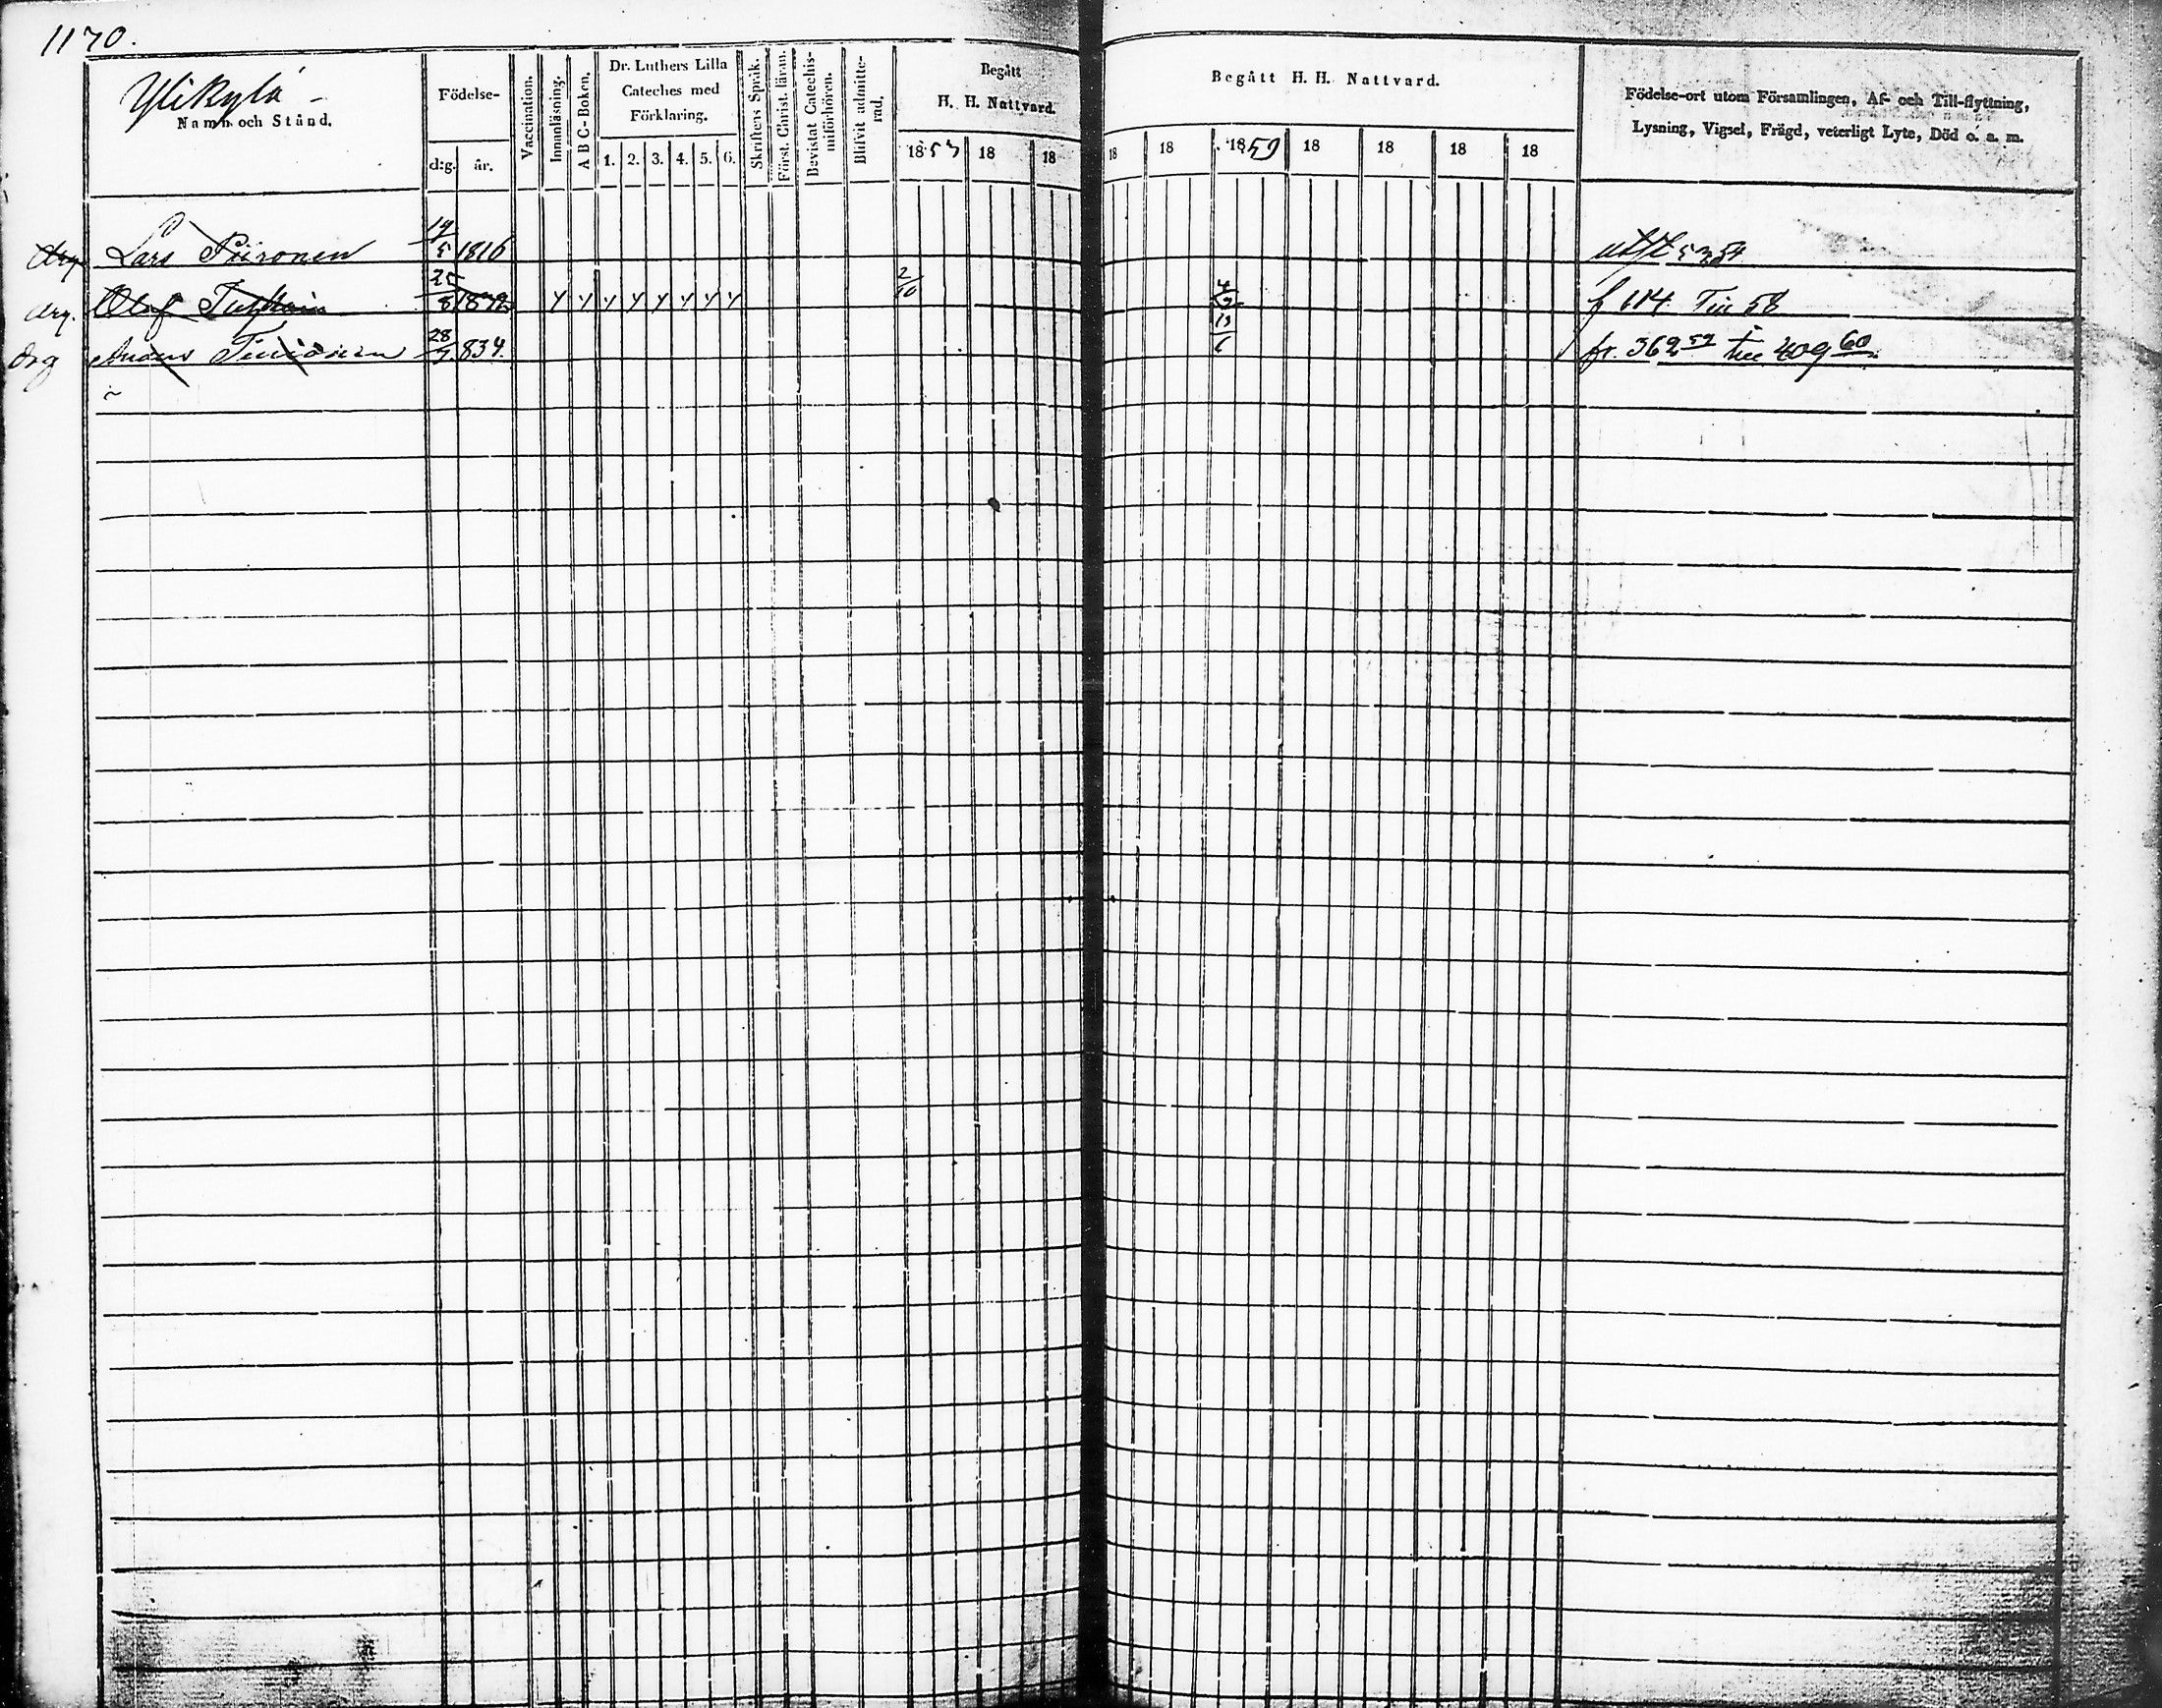 1170.
Ylikylä
Namn och Stånd.
Födelse-
d:g. år.
Vaccination.
Innanläsning.
A B C-Boken.
Dr. Luthers Lilla
Cateches med
Förklaring.
1. 2. 3. 4. 5. 6.
Skriftens Språk.
Först. Christ. läran.
Bevistat Catechis-
miförhören.
Blifvit admitte-
rad.
Begått
H. H. Nattvard.
1853 18 18
Begått H. H. Nattvard.
18 18 1859 18 18 18 18
Födelse-ort utom Församlingen, Af- och Till-flyttning,
Lysning, Vigsel, Frägd, veterligt Lyte, Död o. a. m.
drg Lars Piironen 19/5 1816 utfl 54
drg. Olof 25/8 2/10 f 614. Till 58
drg Anders 28/7 834. 13/6 fr. 362 59 till 409 60